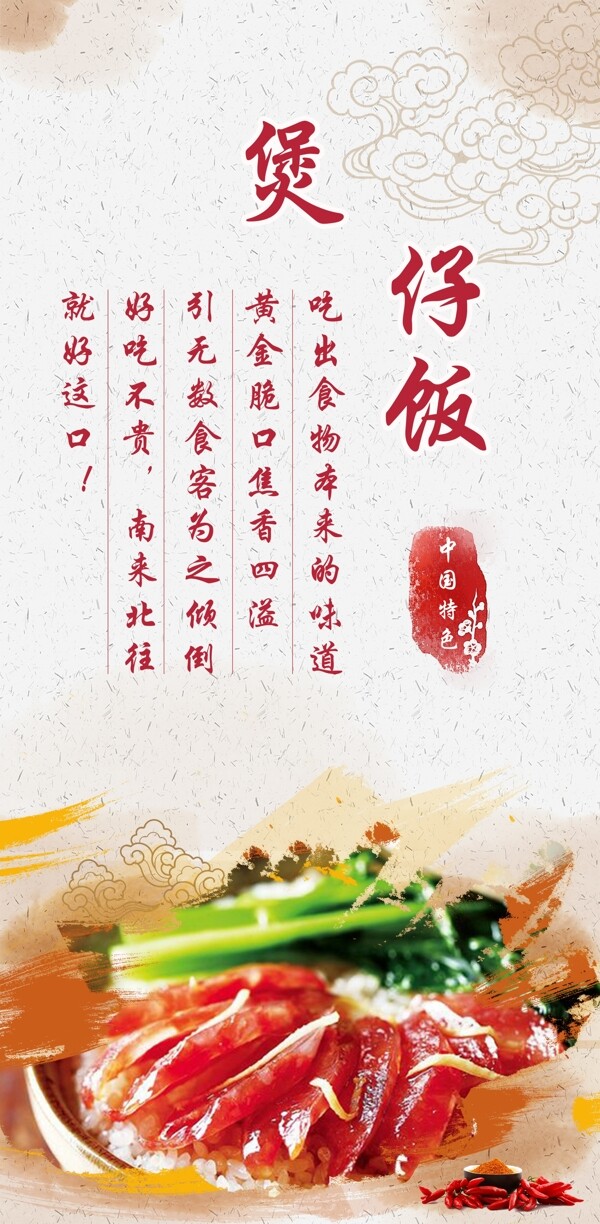 煲
仔饭
吃出食物本来的味道
黄金脆口焦香四溢
引无数食客为之倾倒
好吃不贵，南来北往
就好这口！
中国特色